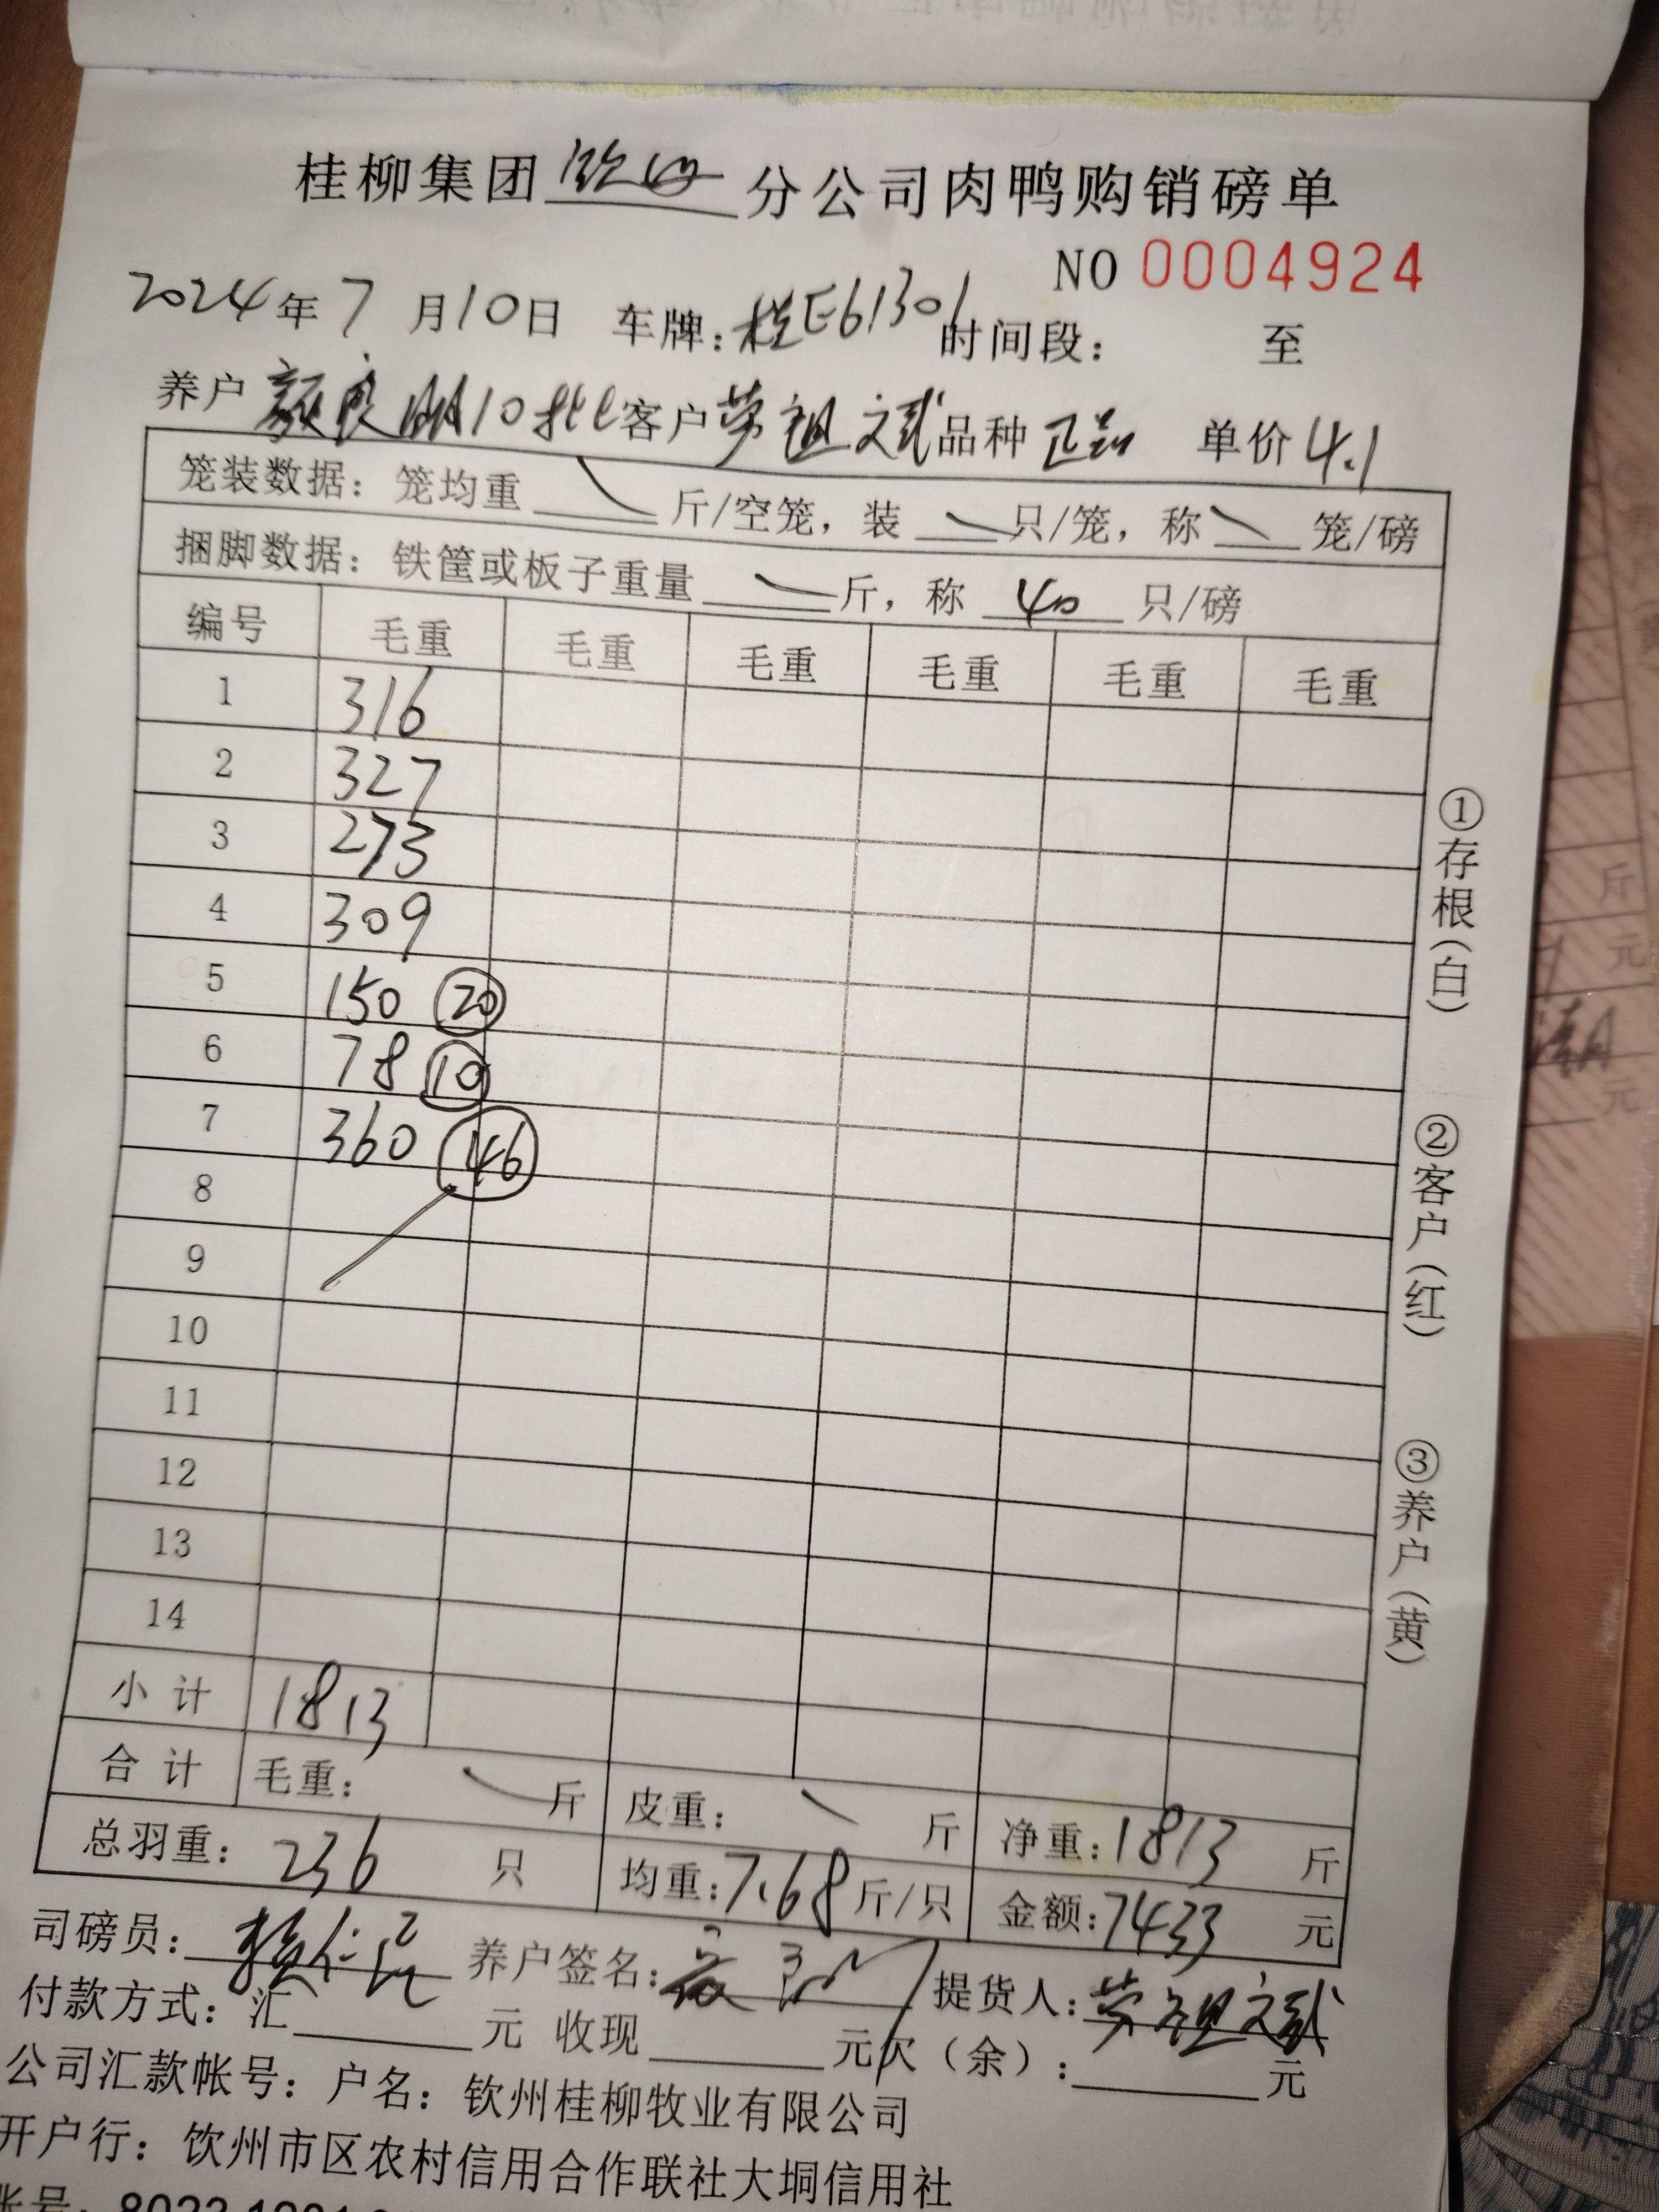 桂柳集团钦州分公司肉鸭购销磅单
NO 0004924
2024年7月10日 车牌:桂E61301 时间段: 至
养户 颜良明10批 客户 劳祖斌 品种 正品 单价 4.1
笼装数据:笼均重 斤/空笼,装 只/笼,称 笼/磅
捆脚数据:铁筐或板子重量 斤,称 40 只/磅
编号 毛重 毛重 毛重 毛重 毛重 毛重
1 316
2 327
3 273
4 309
5 150 20
6 78 10
7 360 46
8
9
10
11
12
13
14
小计 1813
合计 毛重: 斤 皮重: 斤 净重:1813 斤
总羽重:236 只 均重:7.68斤/只 金额:7433 元
司磅员: 养户签名: 提货人:劳祖斌
付款方式:汇 元 收现 元欠(余): 元
公司汇款帐号:户名:钦州桂柳牧业有限公司
开户行:钦州市区农村信用合作联社大垌信用社
①存根(白)
②客户(红)
③养户(黄)
斤
元
元